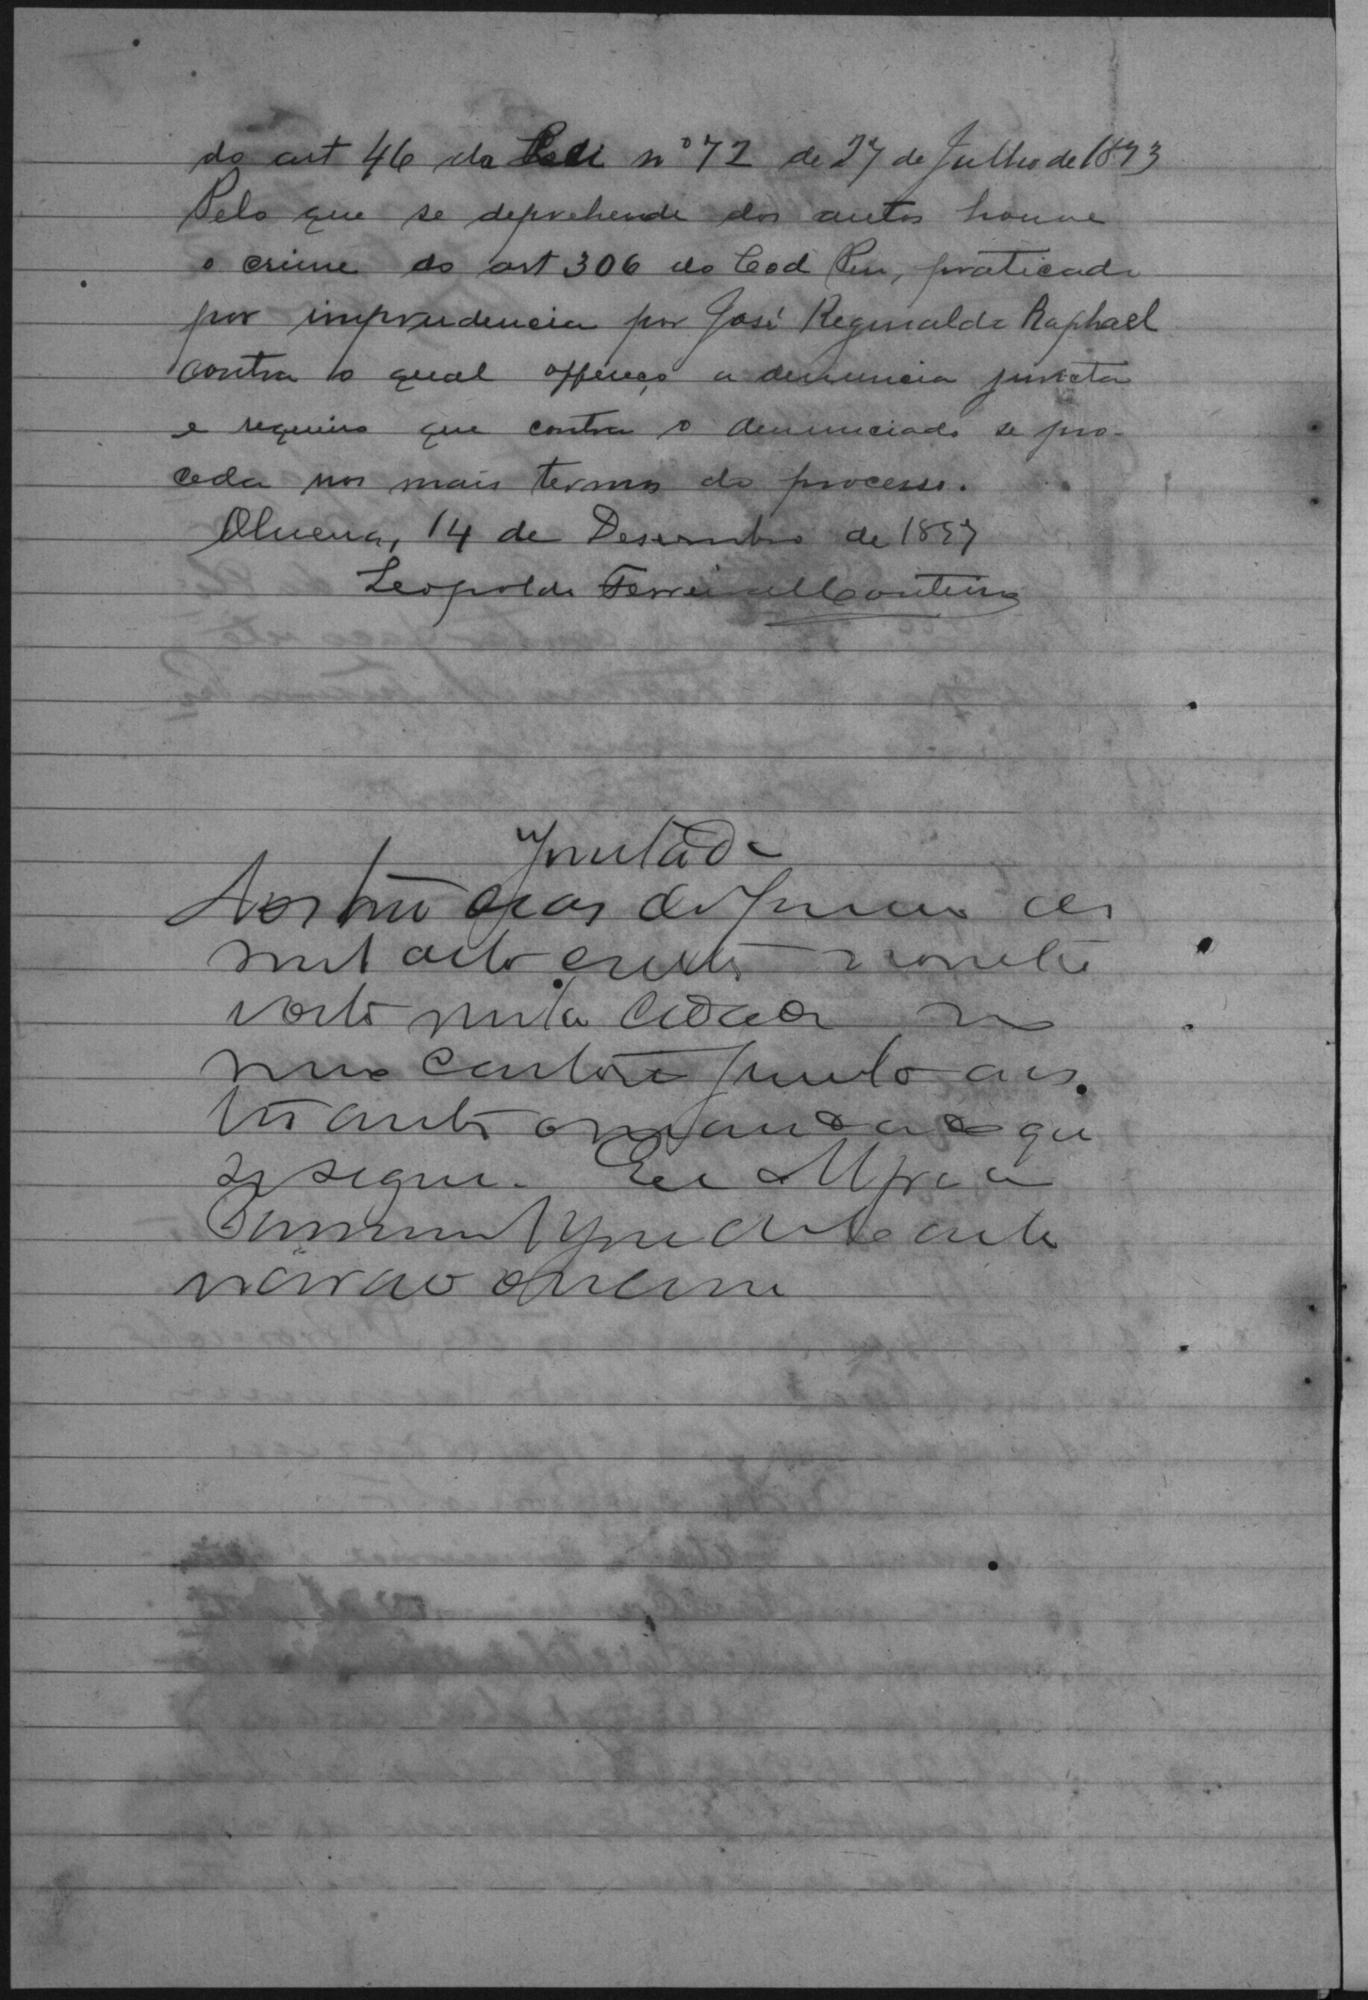 do art 46 da Lei nº 72 de 27 de Julho de 1893
Pelo que se deprehende dos autos houve
o crime do art 306 do Cod Pen, praticado
por imprudencia por José Reginaldo Raphael
contra o qual offereço a denuncia juncta
e requeiro que contra o denunciado se pro-
ceda nos mais termos do processo.
14 de Desembro de 1897
Leopoldo Ferreira Monteiro
Juntada
Aos tres dias de Janeiro de
mil oito centos noventa e
oito nesta Cidade em
meu cartorio junto aos
autos o mandado que
se segue. Eu
escrivão o escrevi